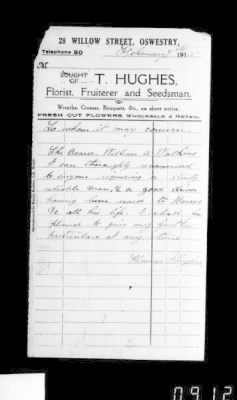 28 WILLOW STREET, OSWESTRY,
Telephone 50
February 191
M
BOUGHT OF T. HUGHES,
Florist, Fruiterer and Seedsman.
Wreaths, Crosses, Bouquets, &c., on short notice.
FRESH CUT FLOWERS, WHOLESALE & RETAIL.
To whom it may concern
The Bearer William A Watkins
I can thoroughly recommend
to anyone requiring a steady
reliable man, & a good driver
having been used to Horses
&c all his life. I shall be
pleased to give any further
particulars at any time
Thomas Hughes
0912